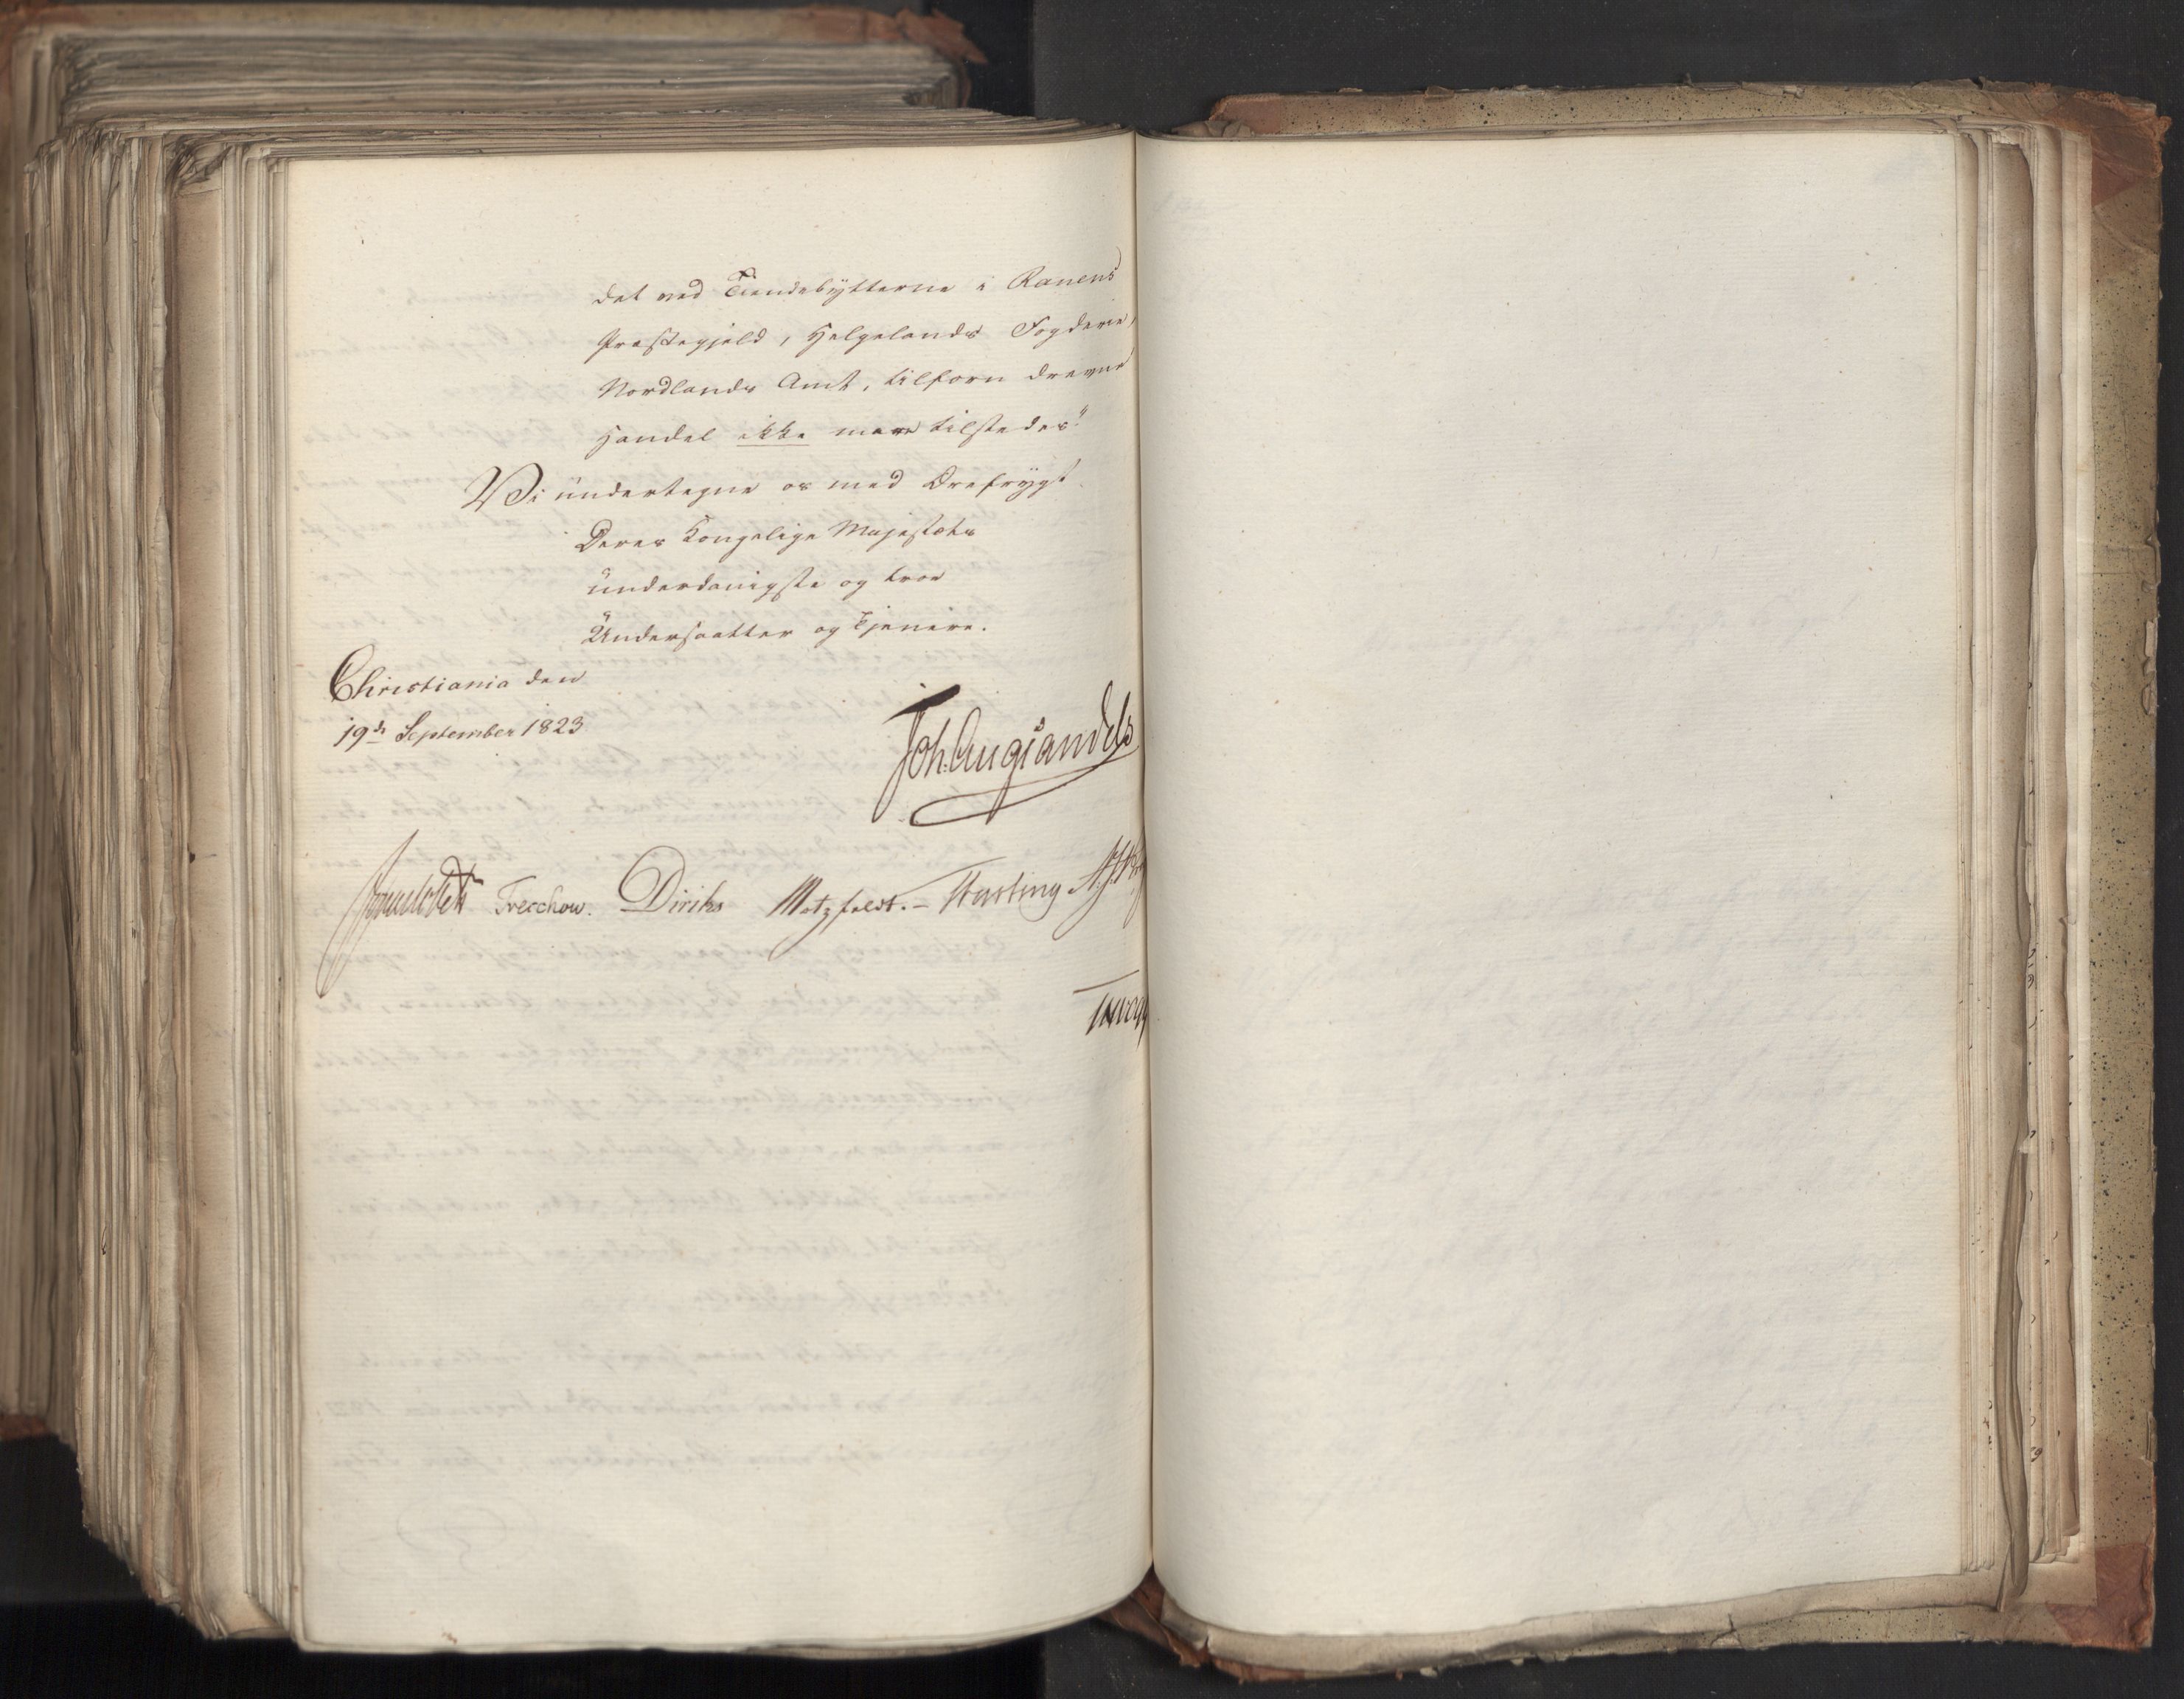 det ved Tiendebytterne i Ranens
Præstegjeld, Helgelands Fogderie,
Nordlands Amt, tilforn drevne
Handel ikke mere tilstedes"
Vi undertegne os med Ærefrygt
Deres Kongelige Majestæts
underdanigste og troe
Undersaatter og Tjenere.
Christiania den
19de September 1823
Joh. Aug: Sandels
Treschow. Diriks Motzfeldt. - Fasting